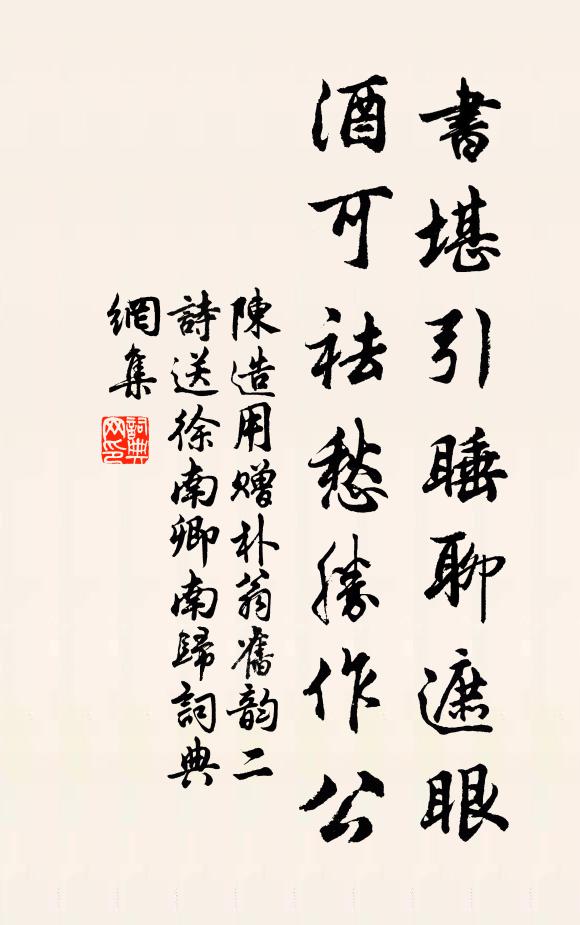 書堪引睡聊遮眼
酒可祛愁勝作公
陳造用贈朴翁舊韵二
詩送徐南卿南歸詞典
網集
詞典网印